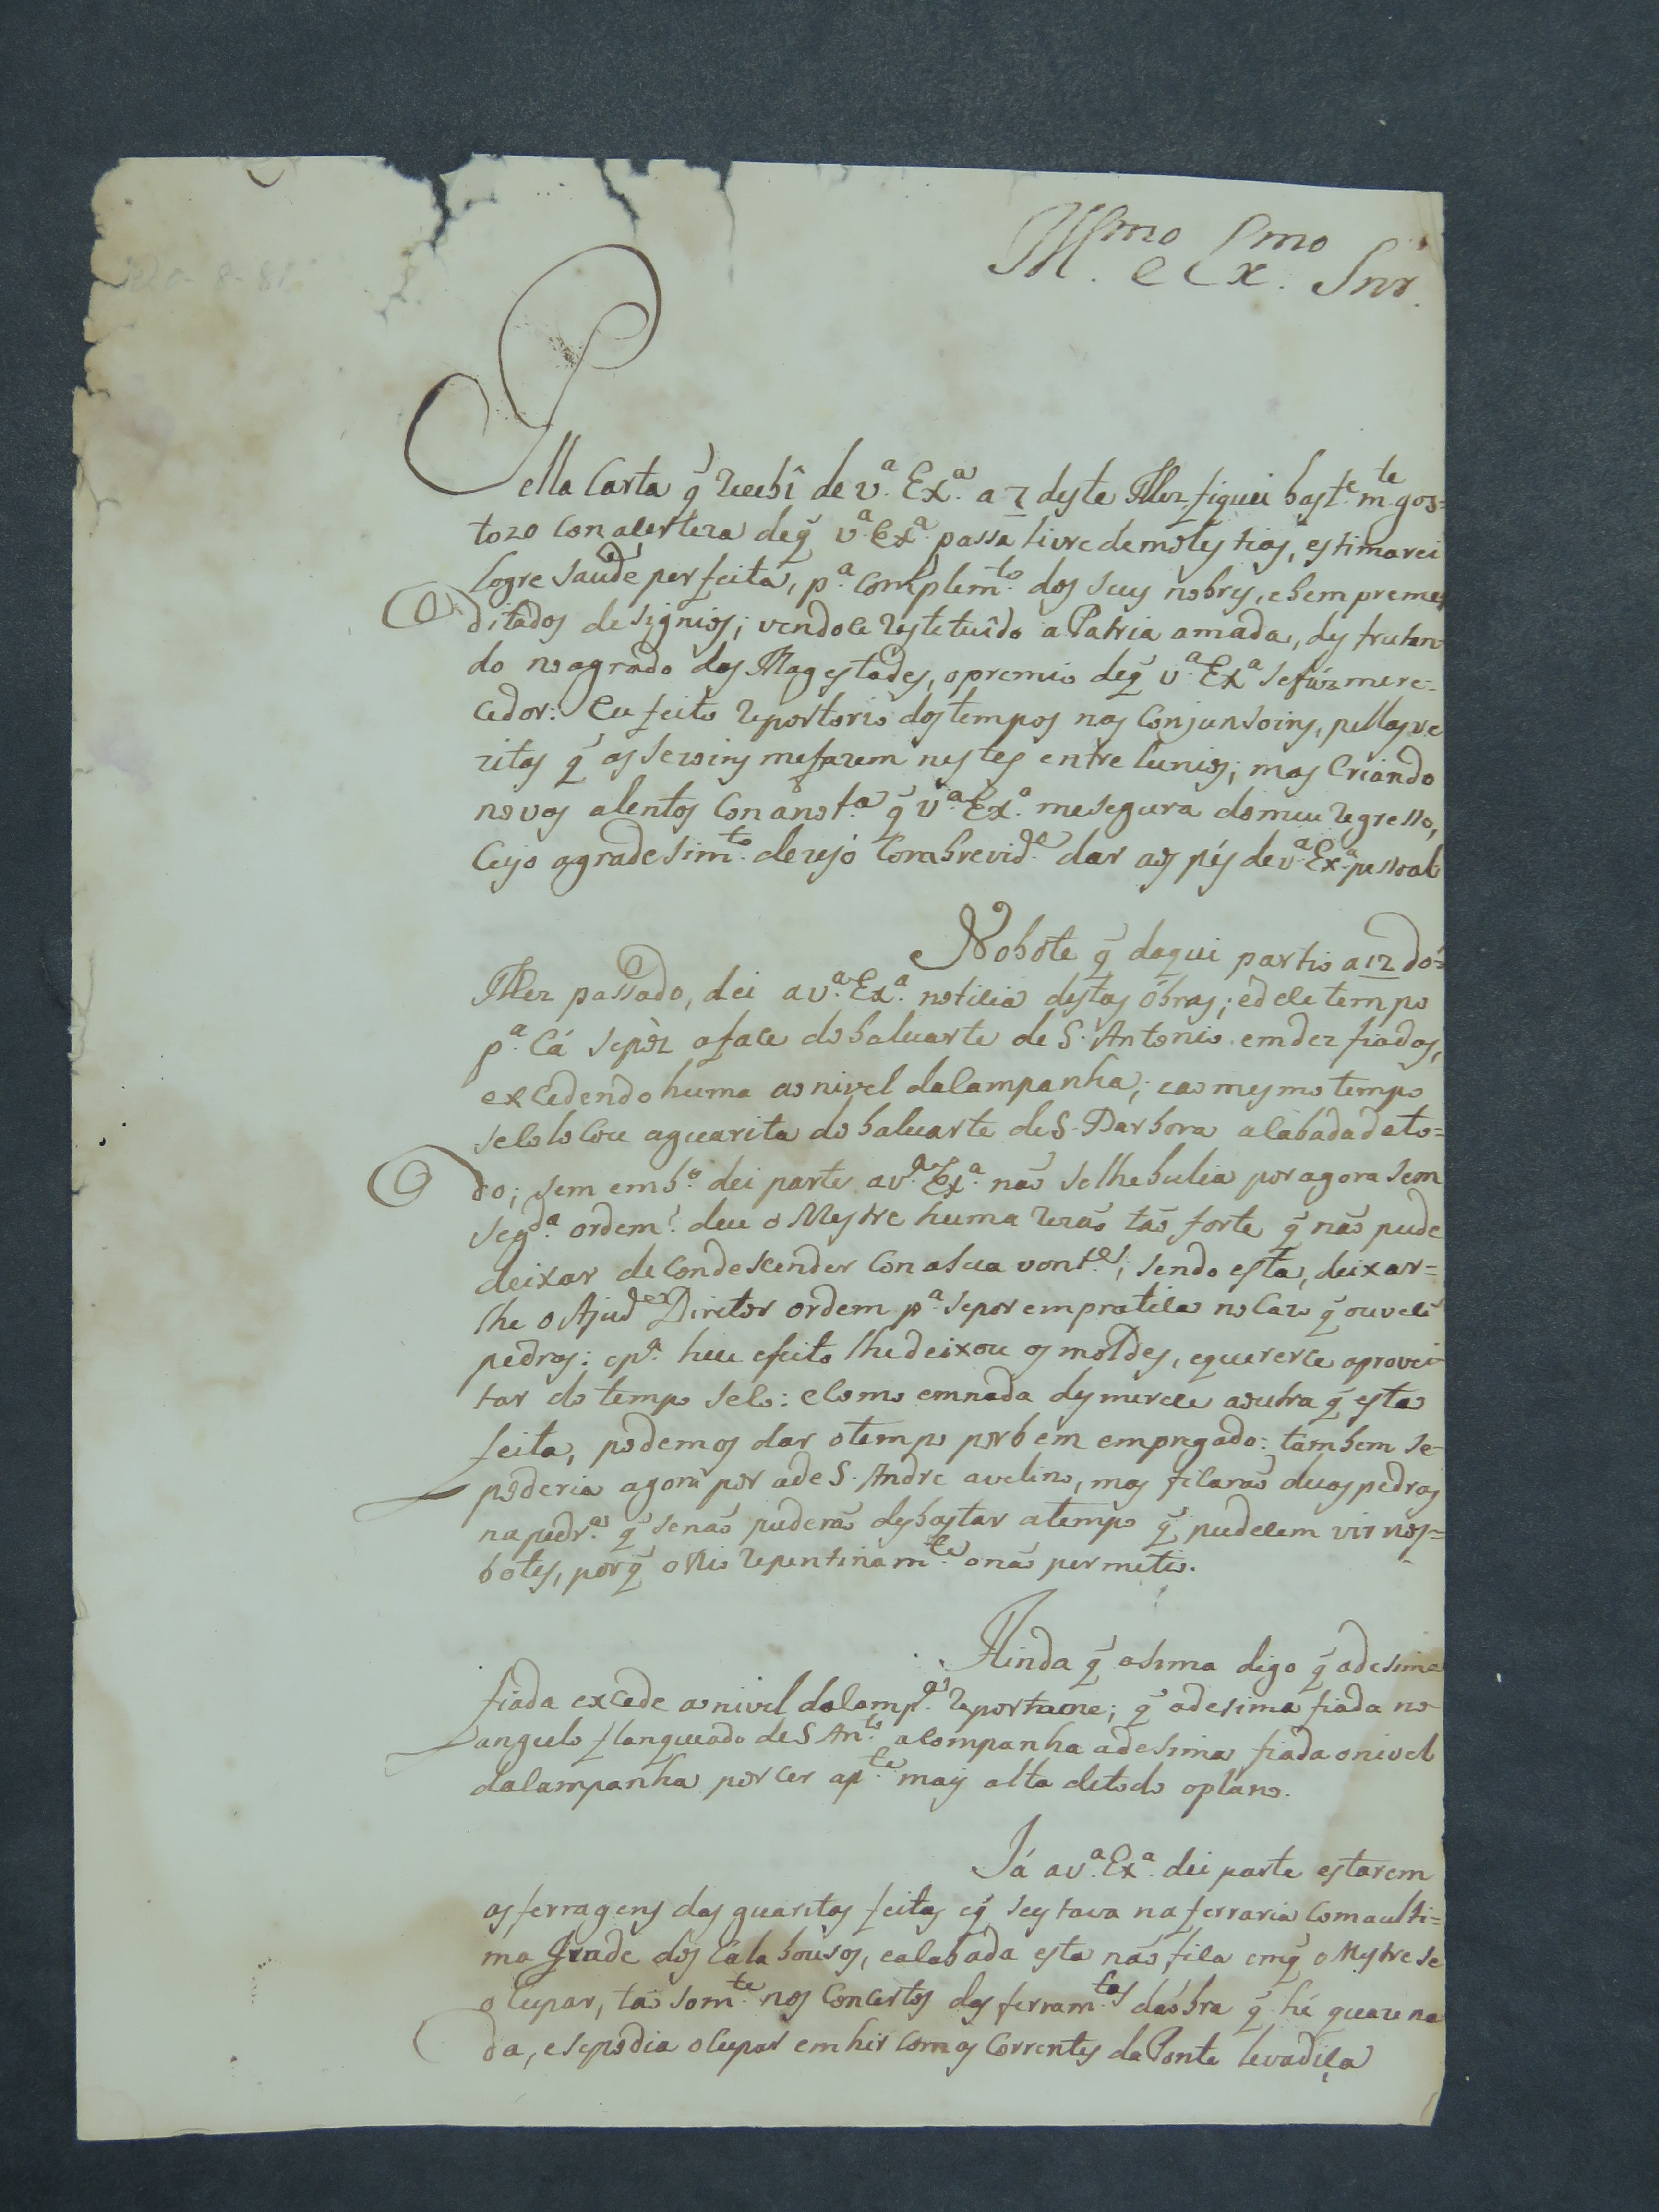 Ill.mo e Ex.mo Snr.
Pella Carta q̃ recebî de v.a Ex.a a 7 deste Mez, fiquei bast.e m.te gos=
tozo con acerteza deq̃ v.a Ex.a passa livre demolestias, estimarei
logre saude perfeita, p.a complem.to dos seus nobres, ebem preme
ditados designios; vendoce restetuîdo a Patria amada, desfrutan=
do no agrado das Magestades, opremio deq̃ v.a Ex.a sefáz mere=
cedor: Eu feito reportorio dos tempos nas Conjunsoins, pellas ve
zitas q̃ as sezoins mefazem nestes entrelunios; mas Criando
novos alentos Con anot.a q̃ v.a Ex.a mesegura domeu regresso,
Cujo agradesim.to dezejo Combrevid.e dar aos pés de v.a Ex.a pessoal
Nobote q̃ daqui partio a 12 do=
Mez passado, dei a v.a Ex.a noticia destas óbras; edele tempo
p.a Cá sepòz aface do baluarte de S. Antonio em dez fiadas,
excedendo huma ao nivel daCampanha; eao mesmo tempo
seColoCou aguarita do baluarte de S. Barbora aCabada deto=
do; sem emb.o dei parte a v.a Ex.a naõ selhebulia por agora sem
seg.da ordem: deu o Mestre huma rezaõ taõ forte q̃ naõ pude
deixar de Condescender Con asua vont.e; sendo esta, deixar=
lhe o Ajud.e Diretor ordem p.a sepor empratica no Cazo q̃ ouvece
pedras: ep.a heu efeito lhedeixou os moldes, equererce aprovei=
tar do tempo seCo: eComo emnada desmerece aoutra q̃ esta
feita, podemos dar otempo porbem empregado: tambem se=
poderia agora por ade S. Andre avelino, mas ficaraõ duas pedras
na pedr.a q̃ senaõ puderaõ desbastar atempo q̃ pudecem vir nos=
botes, porq̃ oRio repentinam.te onaõ permetio.
Ainda q̃ asima digo q̃ adesima
fiada excede ao nivel daCamp.a reportome; q̃ adesima fiada no
angulo flanqueado de S Ant.o aCompanha adesima fiada onivel
daCampanha por cer ap.te mais alta detodo oplano.
Já a v.a Ex.a dei parte estarem
as ferragens das guaritas feitas eq̃ sestava na ferraria Comaulti=
ma Grade dos Calabousos, eaCabada esta naõ fica emq̃ o Mestre se
oCupar, taõ som.te nos Concertos das ferram.tas daóbra q̃ hé quaze na
da, esepodia oCupar em hir Com as Correntes da Ponte levadiça